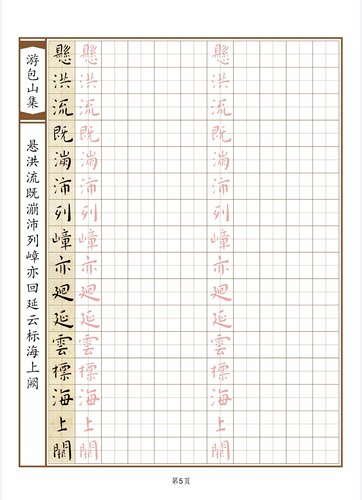 游包山集
悬洪流既漰沛列嶂亦回延云标海上阙
懸洪流既漰沛列嶂亦廻延雲標海上闕
懸洪流既漰沛列嶂亦廻延雲標海上闕
懸洪流既漰沛列嶂亦廻延雲標海上闕
第5页